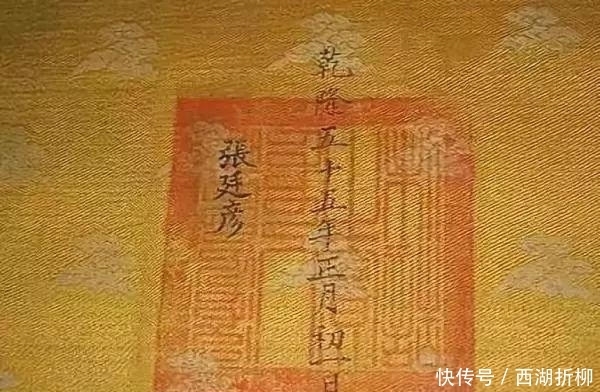 乾隆五十五年正月初一日
張廷彦
快传号/西湖折柳